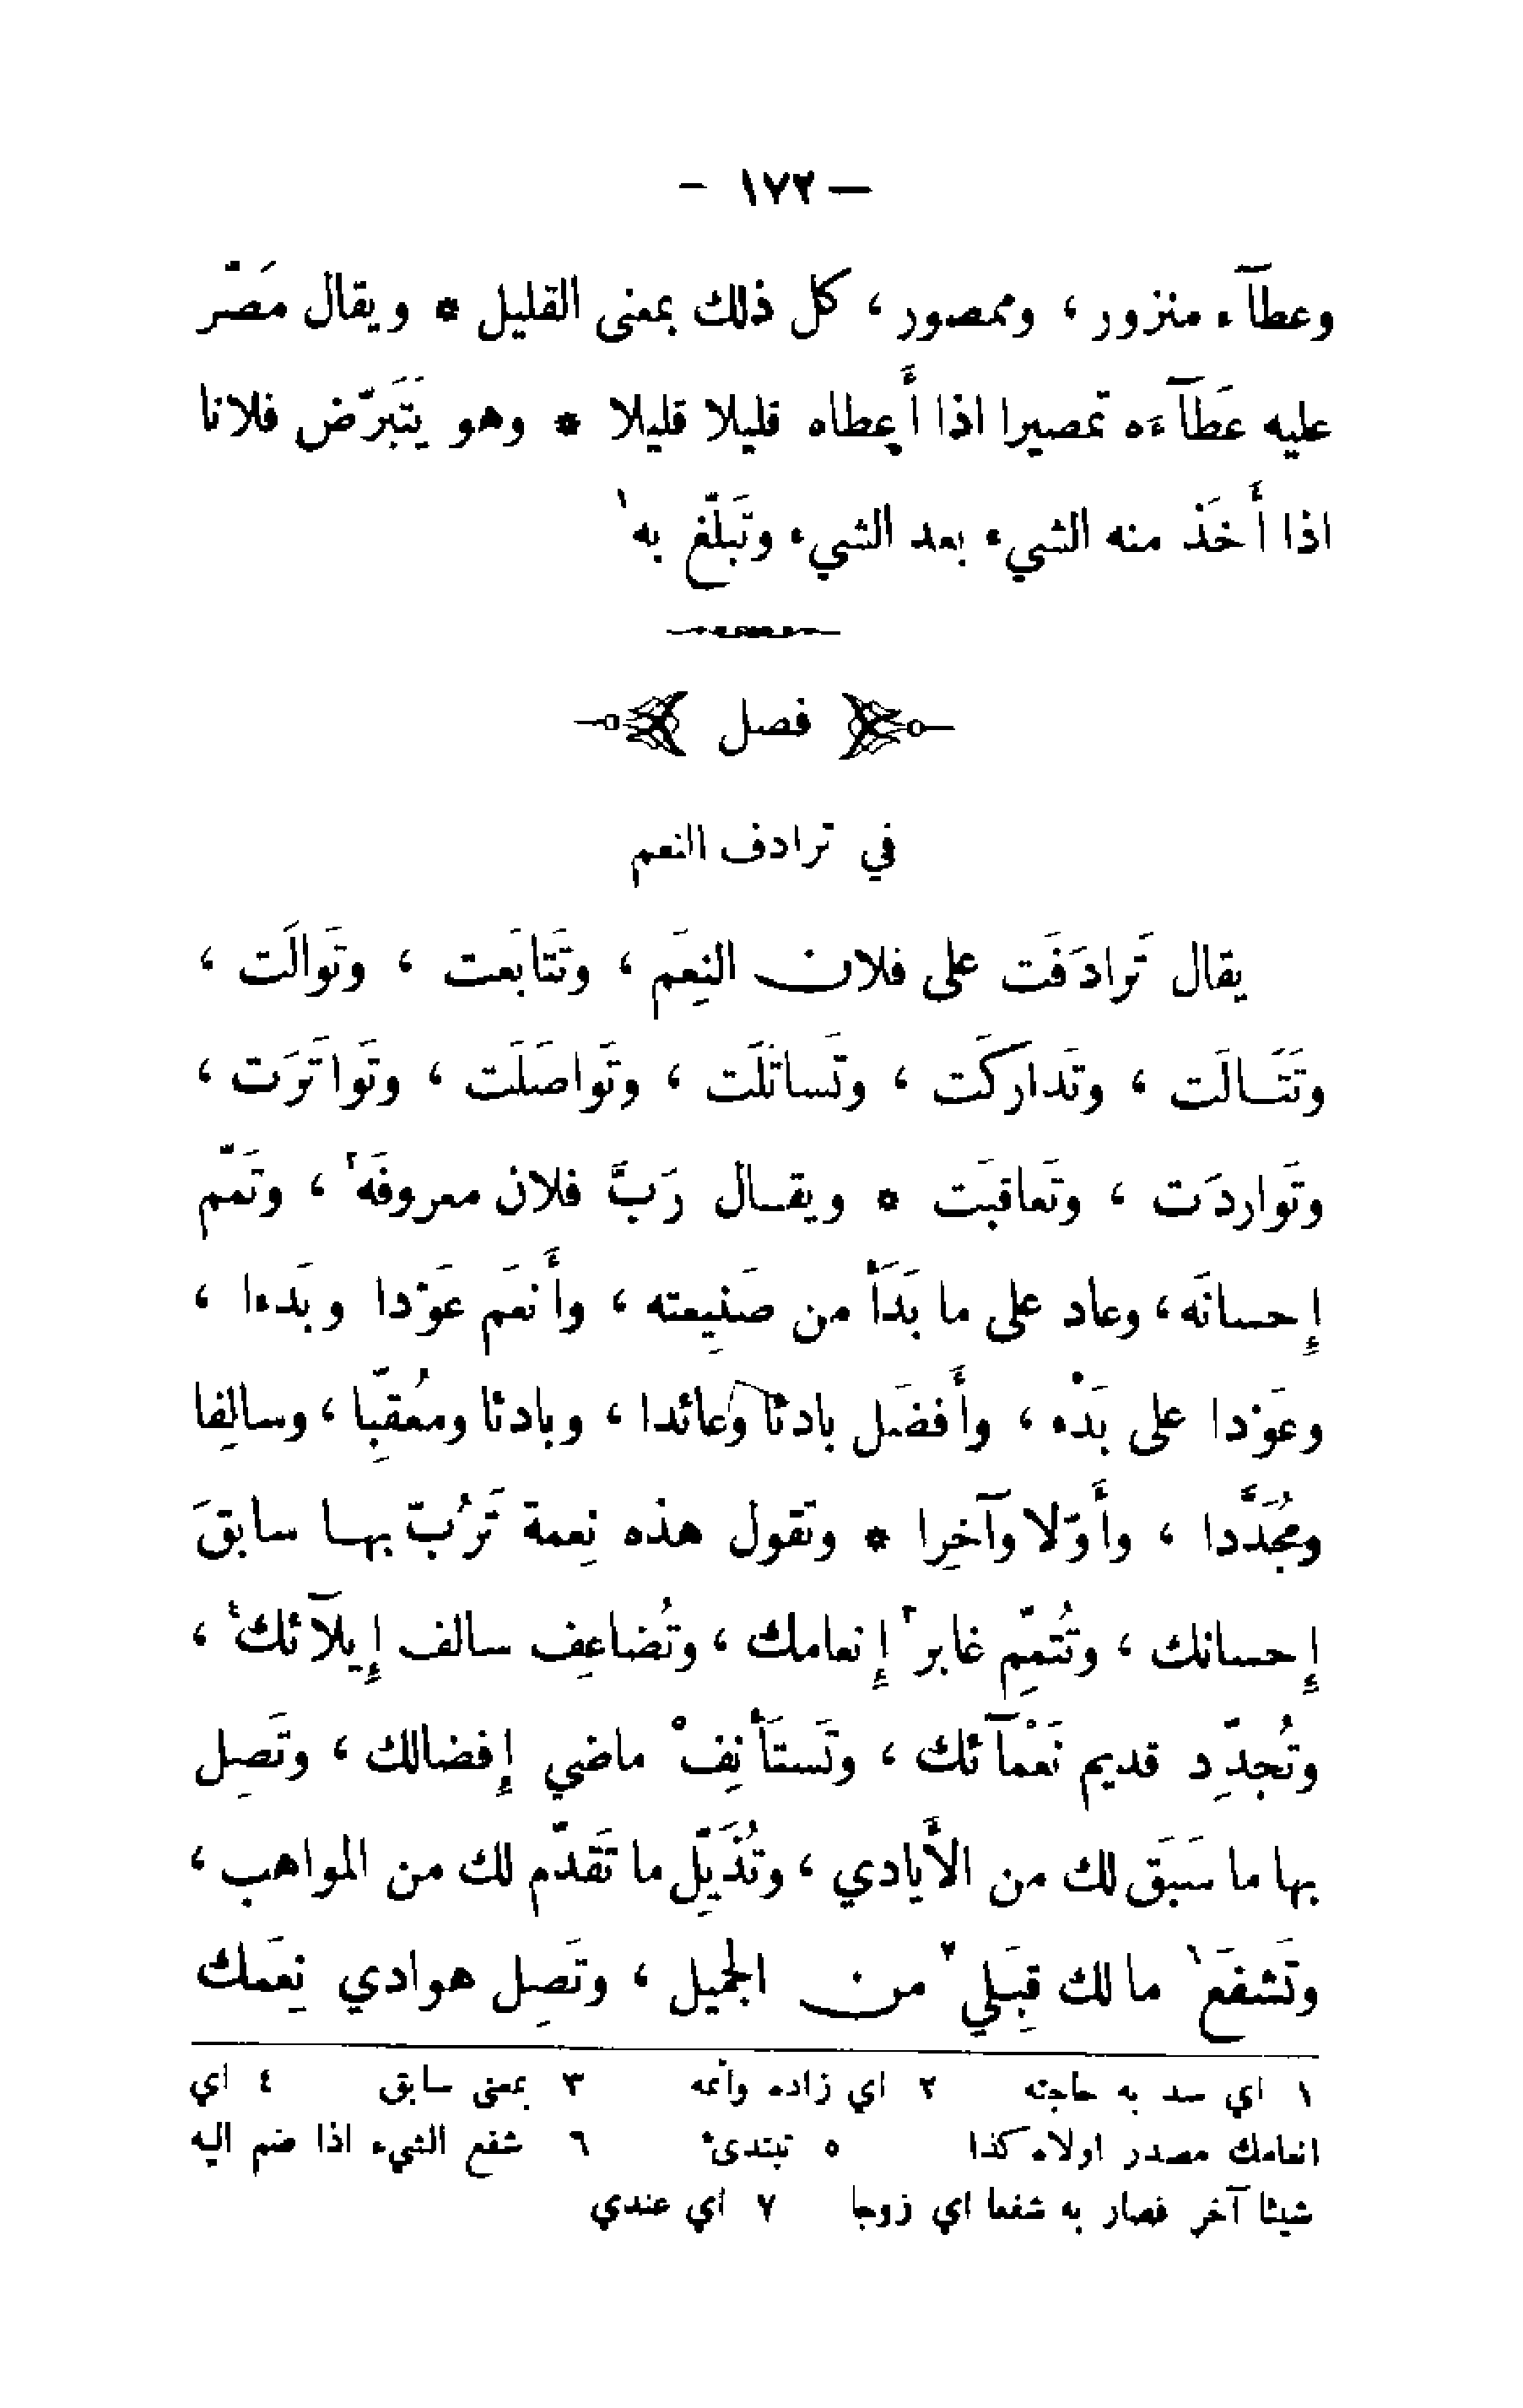 — ١٧٢ —
وعطآء منزور ، وممصور ، كل ذلك بمعنى القليل * ويقال مَصّر
عليه عَطآءَه تمصيرا اذا أَعطاه قليلا قليلا * وهو يَتَبَرّض فلانا
اذا أَخَذ منه الشيء بعد الشيء وتَبلّغ به١
فصل
في ترادف النعم
يقال تَرادَفَت على فلان النِعَم ، وتَتابَعت ، وتَوالَت ،
وتَتَـالَت ، وتَداركَت ، وتَساتَلَت ، وتَواصَلَت ، وتَواتَرَت ،
وتَواردَت ، وتَعاقبَت * ويقـال رَبَّ فلان معروفَه٢ ، وتَمّم
إحسانَه ، وعاد على ما بَدَأَ من صَنِيعته ، وأَنعَم عَوْدا وبَدءا ،
وعَوْدا على بَدْء ، وأَفضَل بادئا وعائدا ، وبادئا ومُعقّبِا ، وسالِفا
ومُجَدَّدا ، وأَوّلا وآخِرا * وتقول هذه نِعمة تَرُبّ بهـا سابقَ
إحسانك ، وتُتمّمِ غابر٣ إنعامك ، وتُضاعِف سالف إيلآئك٤ ،
وتُجدّدِ قديم نَعْمآئك ، وتَستَأْنِف٥ ماضي إفضالك ، وتَصِل
بها ما سَبَق لك من الأَيادي ، وتُذَيّلِ ما تَقدّم لك من المواهب ،
وتَشفَع٦ ما لك قِبَلي٧ من الجميل ، وتَصِل هوادي نِعَمك
١ اي سد به حاجته ٢ اي زاده وأتمه ٣ بمعنى سابق ٤ اي
انعامك مصدر اولاه كذا ٥ تبتدئ ٦ شفع الشيء اذا ضم اليه
شيئا آخر فصار به شفعا اي زوجا ٧ اي عندي